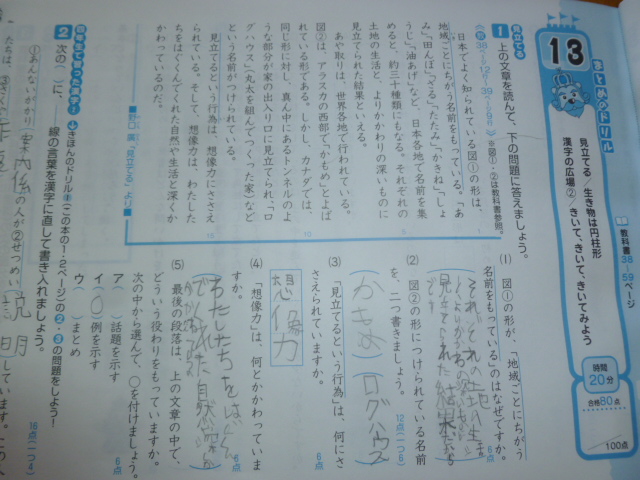 13
まとめのドリル
見立てる／生き物は円柱形
漢字の広場②／きいて、きいて、きいてみよう
教科書
38～59ページ
時間
20分
合格80点
100点
見立てる
1 上の文章を読んで、下の問題に答えましょう。
※図①・②は教科書参照。
日本でよく知られている図①の形は、
地域ごとにちがう名前をもっている。「あ
み」「田んぼ」「ざる」「たたみ」「かきね」「しょ
うじ」「油あげ」など、日本各地で名前を集
めると、約三十種類にもなる。それぞれの
土地の生活と、よりかかわりの深いものに
見立てられた結果といえる。
あや取りは、世界各地で行われている。
図②は、アラスカの西部で「かもめ」とよば
れている形である。しかし、カナダでは、
同じ形に対し、真ん中にあるトンネルのよ
うな部分が家の出入り口に見立てられ、「ロ
グハウス」（丸太を組んでつくった家）など
という名前がつけられている。
見立てるという行為は、想像力にささえ
られている。そして、想像力は、わたした
ちをはぐくんでくれた自然や生活と深くか
かわっているのだ。
野口 廣「見立てる」より
(1) 図①の形が、「地域ごとにちがう
名前をもっている」のはなぜですか。
6点
(2) 図②の形につけられている名前
を、二つ書きましょう。
12点（一つ6）
ログハウス
(3) 「見立てるという行為」は、何にさ
さえられていますか。
6点
想像力
(4) 「想像力」は、何とかかわっていま
すか。
6点
わたしたちをはぐくん
でくれた自然や
(5) 最後の段落は、上の文章の中で、
どういう役わりをもっていますか。
次の中から選んで、○を付けましょう。
6点
ア（ ）話題を示す
イ（○）例を示す
ウ（ ）まとめ
四年生で習った漢字！
きほんのドリル（この本の1・2ページ）の2・3の問題をしよう！
2 次の（ ）に、――線の言葉を漢字に直して書き入れましょう。
16点（一つ4）
①あんないがかり
の人が②せつめい